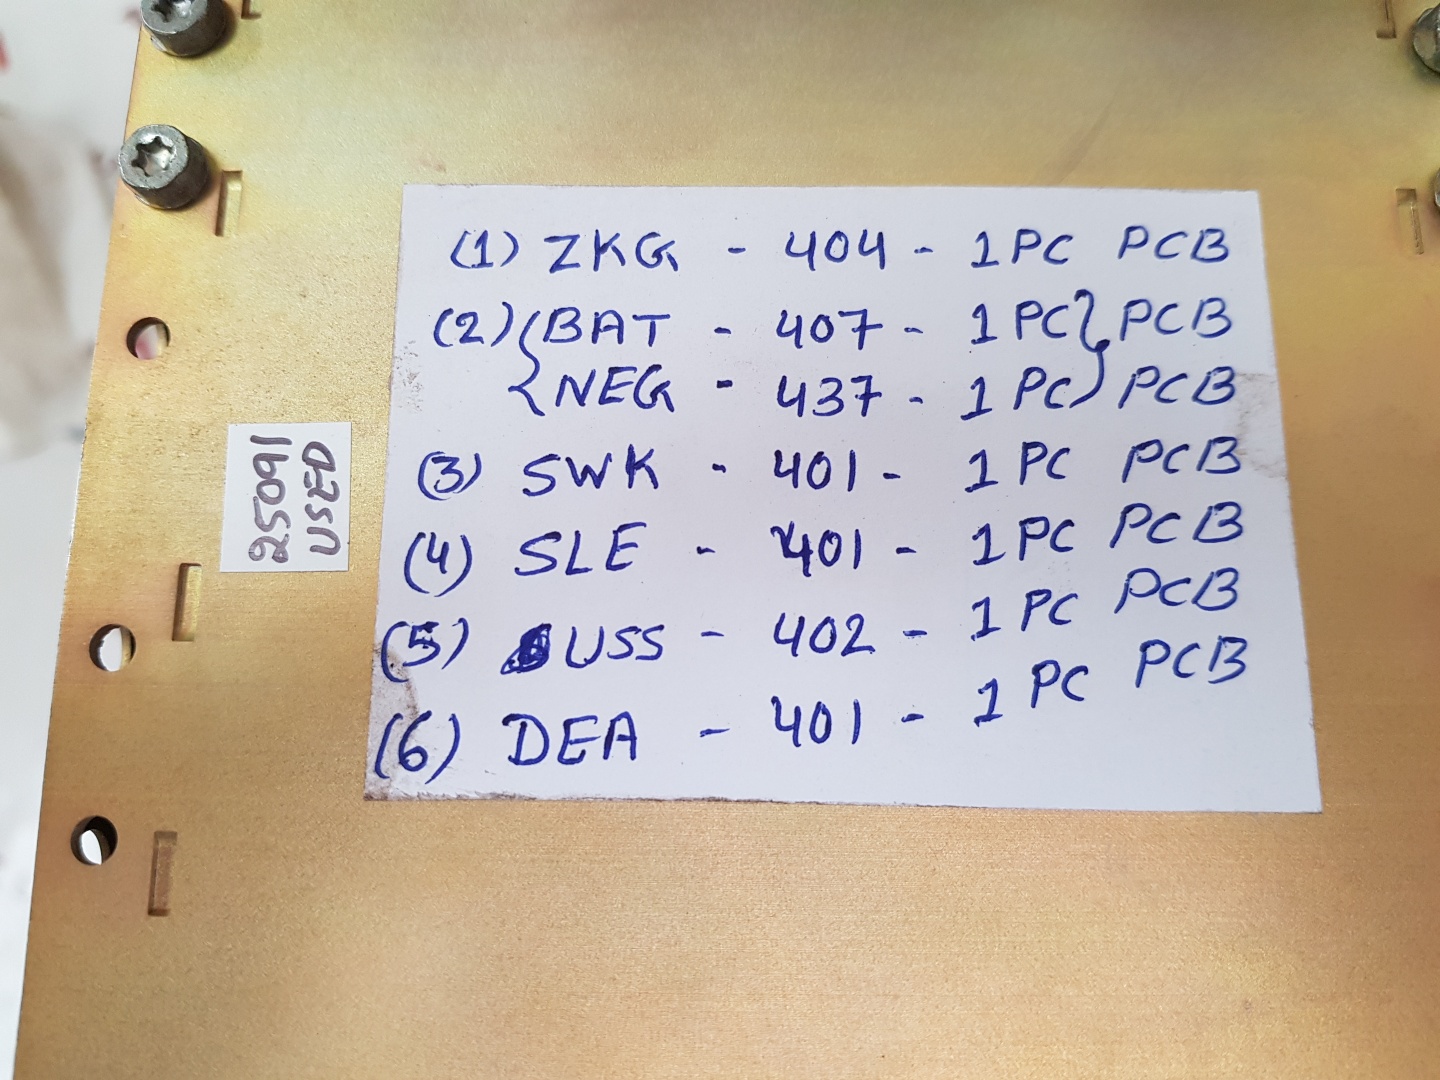 (1) ZKG - 404 - 1 PC PCB
(2) { BAT - 407 - 1 PC } PCB
{ NEG - 437 - 1 PC } PCB
(3) SWK - 401 - 1 PC PCB
(4) SLE - 401 - 1 PC PCB
(5) USS - 402 - 1 PC PCB
(6) DEA - 401 - 1 PC PCB
25091
USED